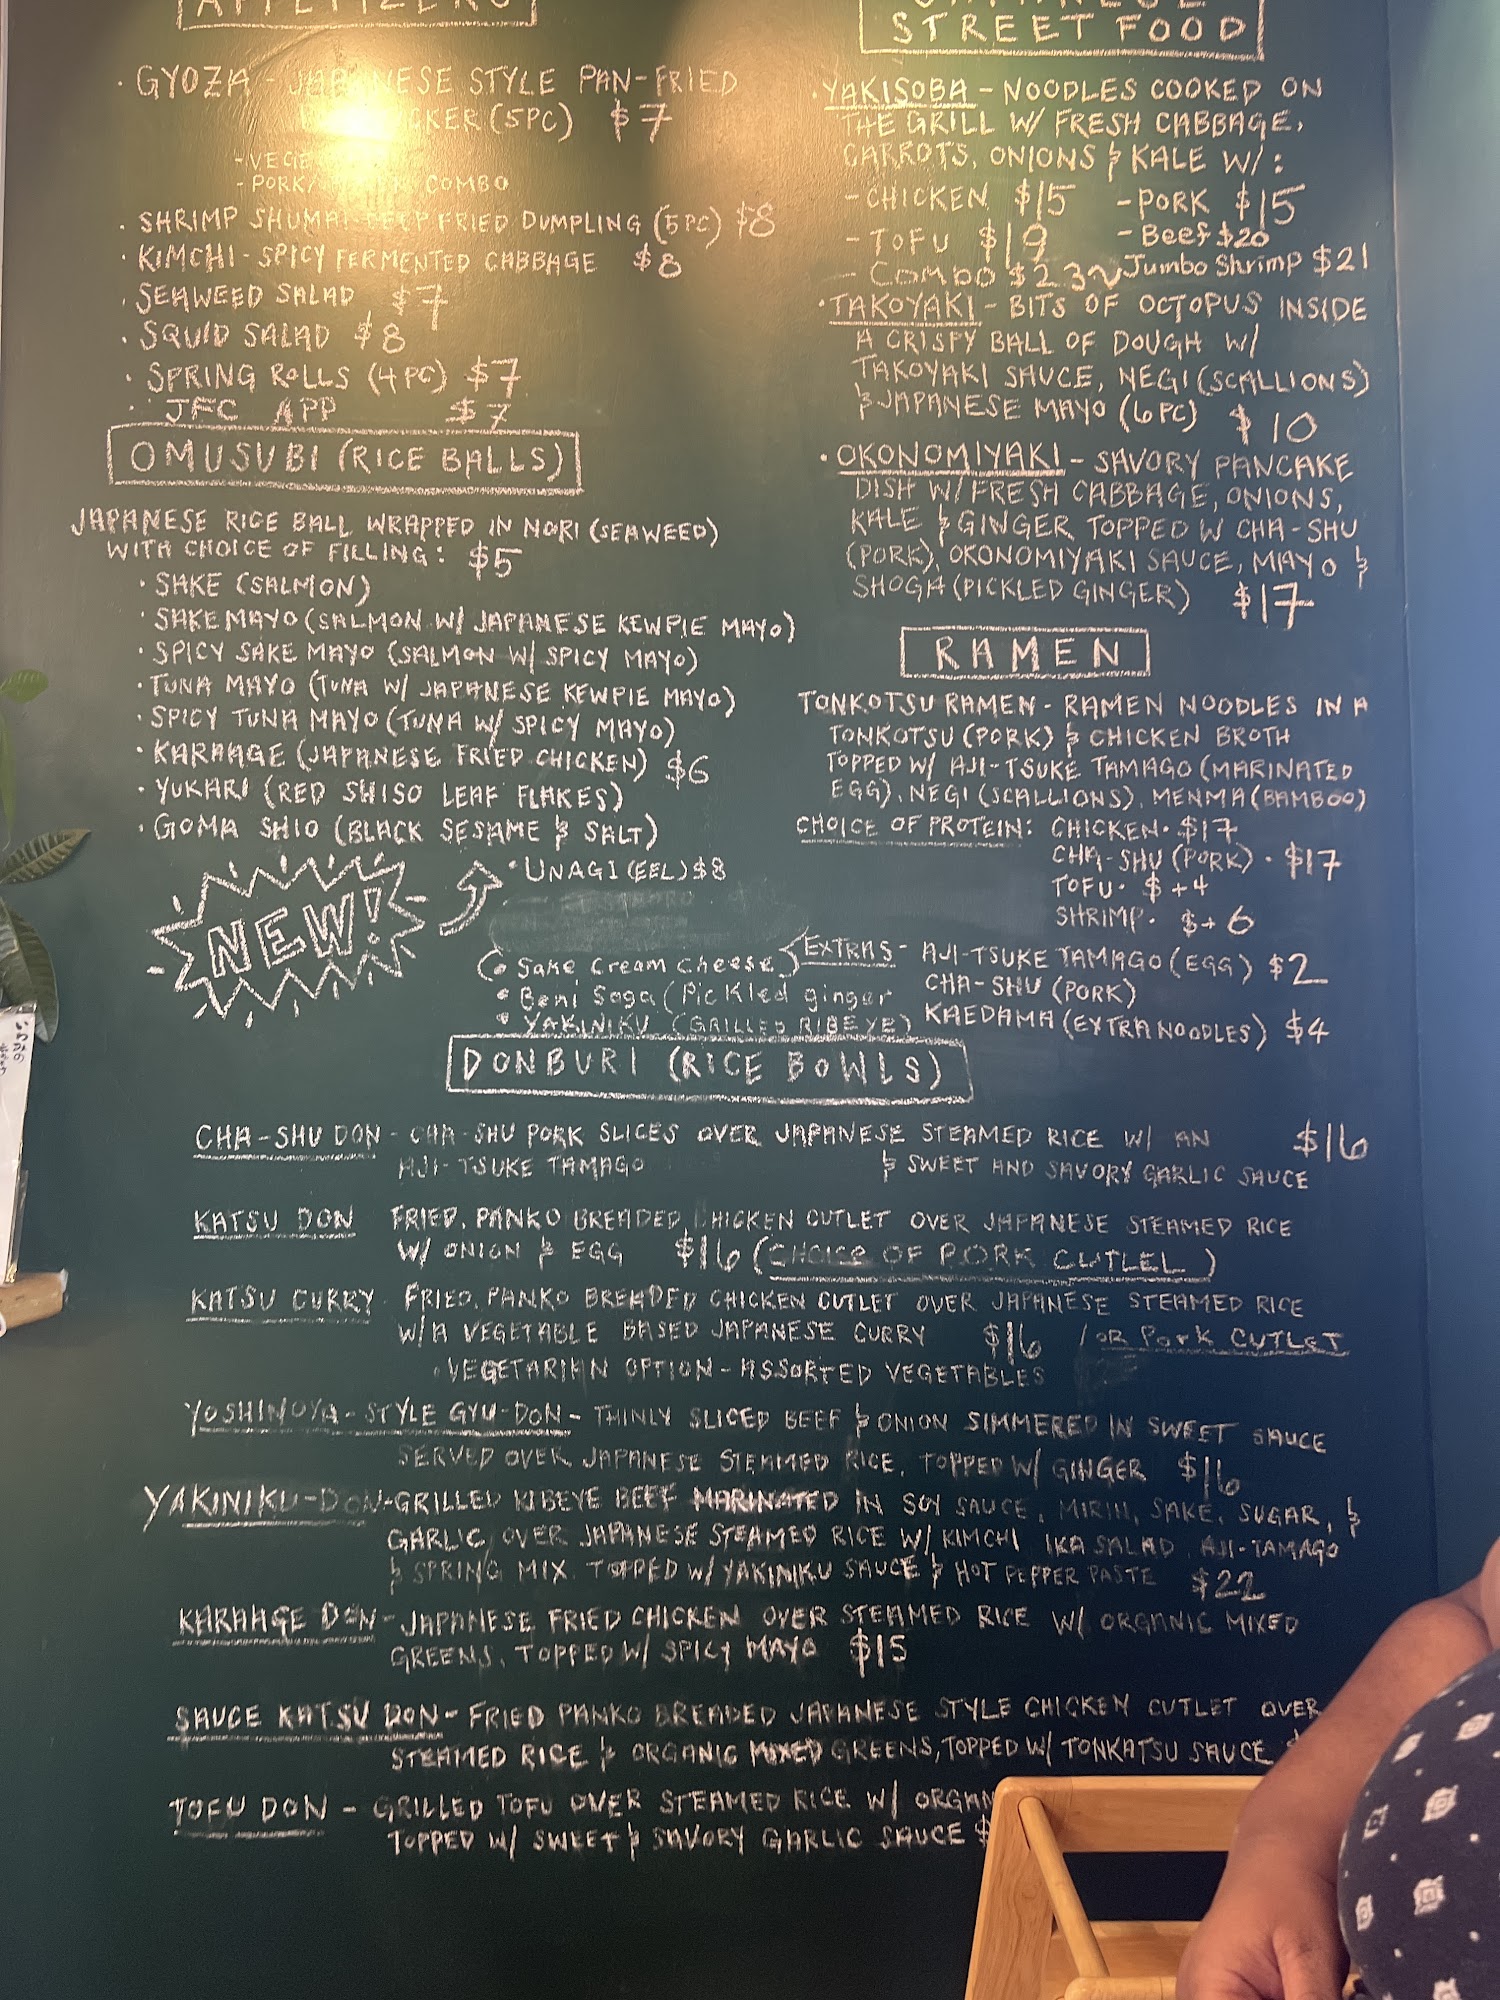 APPETIZERS
· GYOZA - JAPANESE STYLE PAN-FRIED
(5PC) $7
- VEGE
- PORK/ COMBO
· SHRIMP SHUMAI DEEP FRIED DUMPLING (5PC) $8
· KIMCHI - SPICY FERMENTED CABBAGE $8
· SEAWEED SALAD $7
· SQUID SALAD $8
· SPRING ROLLS (4PC) $7
· JFC APP $7
OMUSUBI (RICE BALLS)
JAPANESE RICE BALL WRAPPED IN NORI (SEAWEED)
WITH CHOICE OF FILLING: $5
· SAKE (SALMON)
· SAKE MAYO (SALMON W/ JAPANESE KEWPIE MAYO)
· SPICY SAKE MAYO (SALMON W/ SPICY MAYO)
· TUNA MAYO (TUNA W/ JAPANESE KEWPIE MAYO)
· SPICY TUNA MAYO (TUNA W/ SPICY MAYO)
· KARAAGE (JAPANESE FRIED CHICKEN) $6
· YUKARI (RED SHISO LEAF FLAKES)
· GOMA SHIO (BLACK SESAME & SALT)
NEW!
· UNAGI (EEL) $8
(· Sake Cream Cheese)
· Beni Soga (Pickled ginger
· YAKINIKU (GRILLED RIBEYE)
STREET FOOD
· YAKISOBA - NOODLES COOKED ON
THE GRILL W/ FRESH CABBAGE,
CARROTS, ONIONS & KALE W/:
- CHICKEN $15 - PORK $15
- TOFU $19 - Beef $20
- COMBO $23 ~ Jumbo Shrimp $21
· TAKOYAKI - BITS OF OCTOPUS INSIDE
A CRISPY BALL OF DOUGH W/
TAKOYAKI SAUCE, NEGI (SCALLIONS)
& JAPANESE MAYO (6PC) $10
· OKONOMIYAKI - SAVORY PANCAKE
DISH W/ FRESH CABBAGE, ONIONS,
KALE & GINGER TOPPED W CHA-SHU
(PORK), OKONOMIYAKI SAUCE, MAYO &
SHOGA (PICKLED GINGER) $17
RAMEN
TONKOTSU RAMEN - RAMEN NOODLES IN A
TONKOTSU (PORK) & CHICKEN BROTH
TOPPED W/ AJI-TSUKE TAMAGO (MARINATED
EGG), NEGI (SCALLIONS), MENMA (BAMBOO)
CHOICE OF PROTEIN: CHICKEN · $17
CHA-SHU (PORK) · $17
TOFU · $+4
SHRIMP · $+6
EXTRAS - AJI-TSUKE TAMAGO (EGG) $2
CHA-SHU (PORK)
KAEDAMA (EXTRA NOODLES) $4
DONBURI (RICE BOWLS)
CHA-SHU DON - CHA-SHU PORK SLICES OVER JAPANESE STEAMED RICE W/ AN $16
AJI-TSUKE TAMAGO & SWEET AND SAVORY GARLIC SAUCE
KATSU DON FRIED, PANKO BREADED, CHICKEN CUTLET OVER JAPANESE STEAMED RICE
W/ ONION & EGG $16 (CHOICE OF PORK CUTLEL)
KATSU CURRY FRIED, PANKO BREADED CHICKEN CUTLET OVER JAPANESE STEAMED RICE
W/A VEGETABLE BASED JAPANESE CURRY $16 / OR PORK CUTLET
· VEGETARIAN OPTION - ASSORTED VEGETABLES
YOSHINOYA-STYLE GYU-DON - THINLY SLICED BEEF & ONION SIMMERED IN SWEET SAUCE
SERVED OVER JAPANESE STEAMED RICE, TOPPED W/ GINGER $16
YAKINIKU-DON - GRILLED RIBEYE BEEF MARINATED IN SOY SAUCE, MIRIN, SAKE, SUGAR, &
GARLIC, OVER JAPANESE STEAMED RICE W/ KIMCHI IKA SALAD AJI-TAMAGO
& SPRING MIX. TOPPED W/ YAKINIKU SAUCE & HOT PEPPER PASTE $22
KARAAGE DON - JAPANESE FRIED CHICKEN OVER STEAMED RICE W/ ORGANIC MIXED
GREENS, TOPPED W/ SPICY MAYO $15
SAUCE KATSU DON - FRIED PANKO BREADED JAPANESE STYLE CHICKEN CUTLET OVER
STEAMED RICE & ORGANIC MIXED GREENS, TOPPED W/ TONKATSU SAUCE
TOFU DON - GRILLED TOFU OVER STEAMED RICE W/ ORGAN
TOPPED W/ SWEET & SAVORY GARLIC SAUCE $